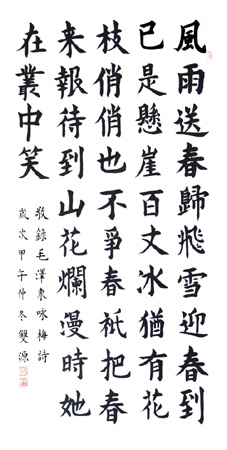 風雨送春歸飛雪迎春到
已是懸崖百丈冰猶有花
枝俏俏也不爭春祇把春
来報待到山花爛漫時她
在叢中笑
敬錄毛澤東咏梅詩
歲次甲午仲冬雙源